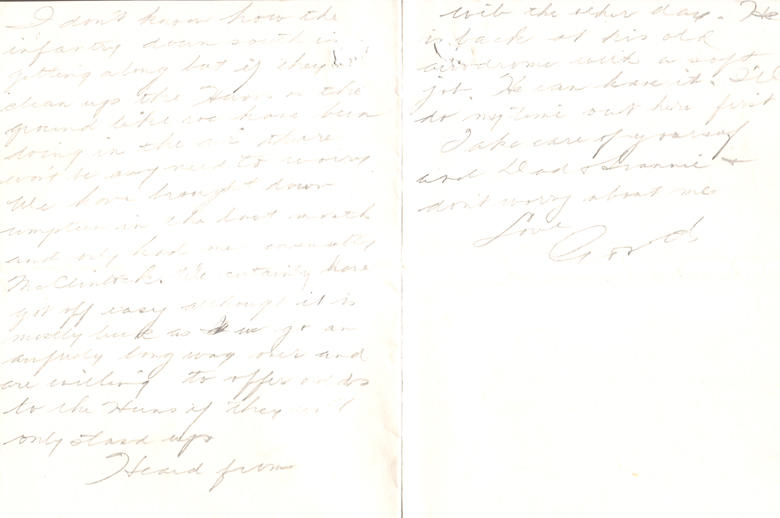 I don't know how the
infantry down south is
getting along but if they
clean up the Huns on the
ground like we have been
doing in the air there
won't be any need to worry.
We have brought down
umpteen in the last month
and only had one casualty
McClintock. We certainly have
got off easy although it is
mostly luck as we go an
awfully long way over and
are willing to offer odds
to the Huns if they will
only stand up.
Heard from
the other day. He
is back at his old
aerodrome with a soft
job. He can have it. I'll
do my time out here first
Take care of yourself
and Dad & Grannie &
don't worry about me
Love
Gord.